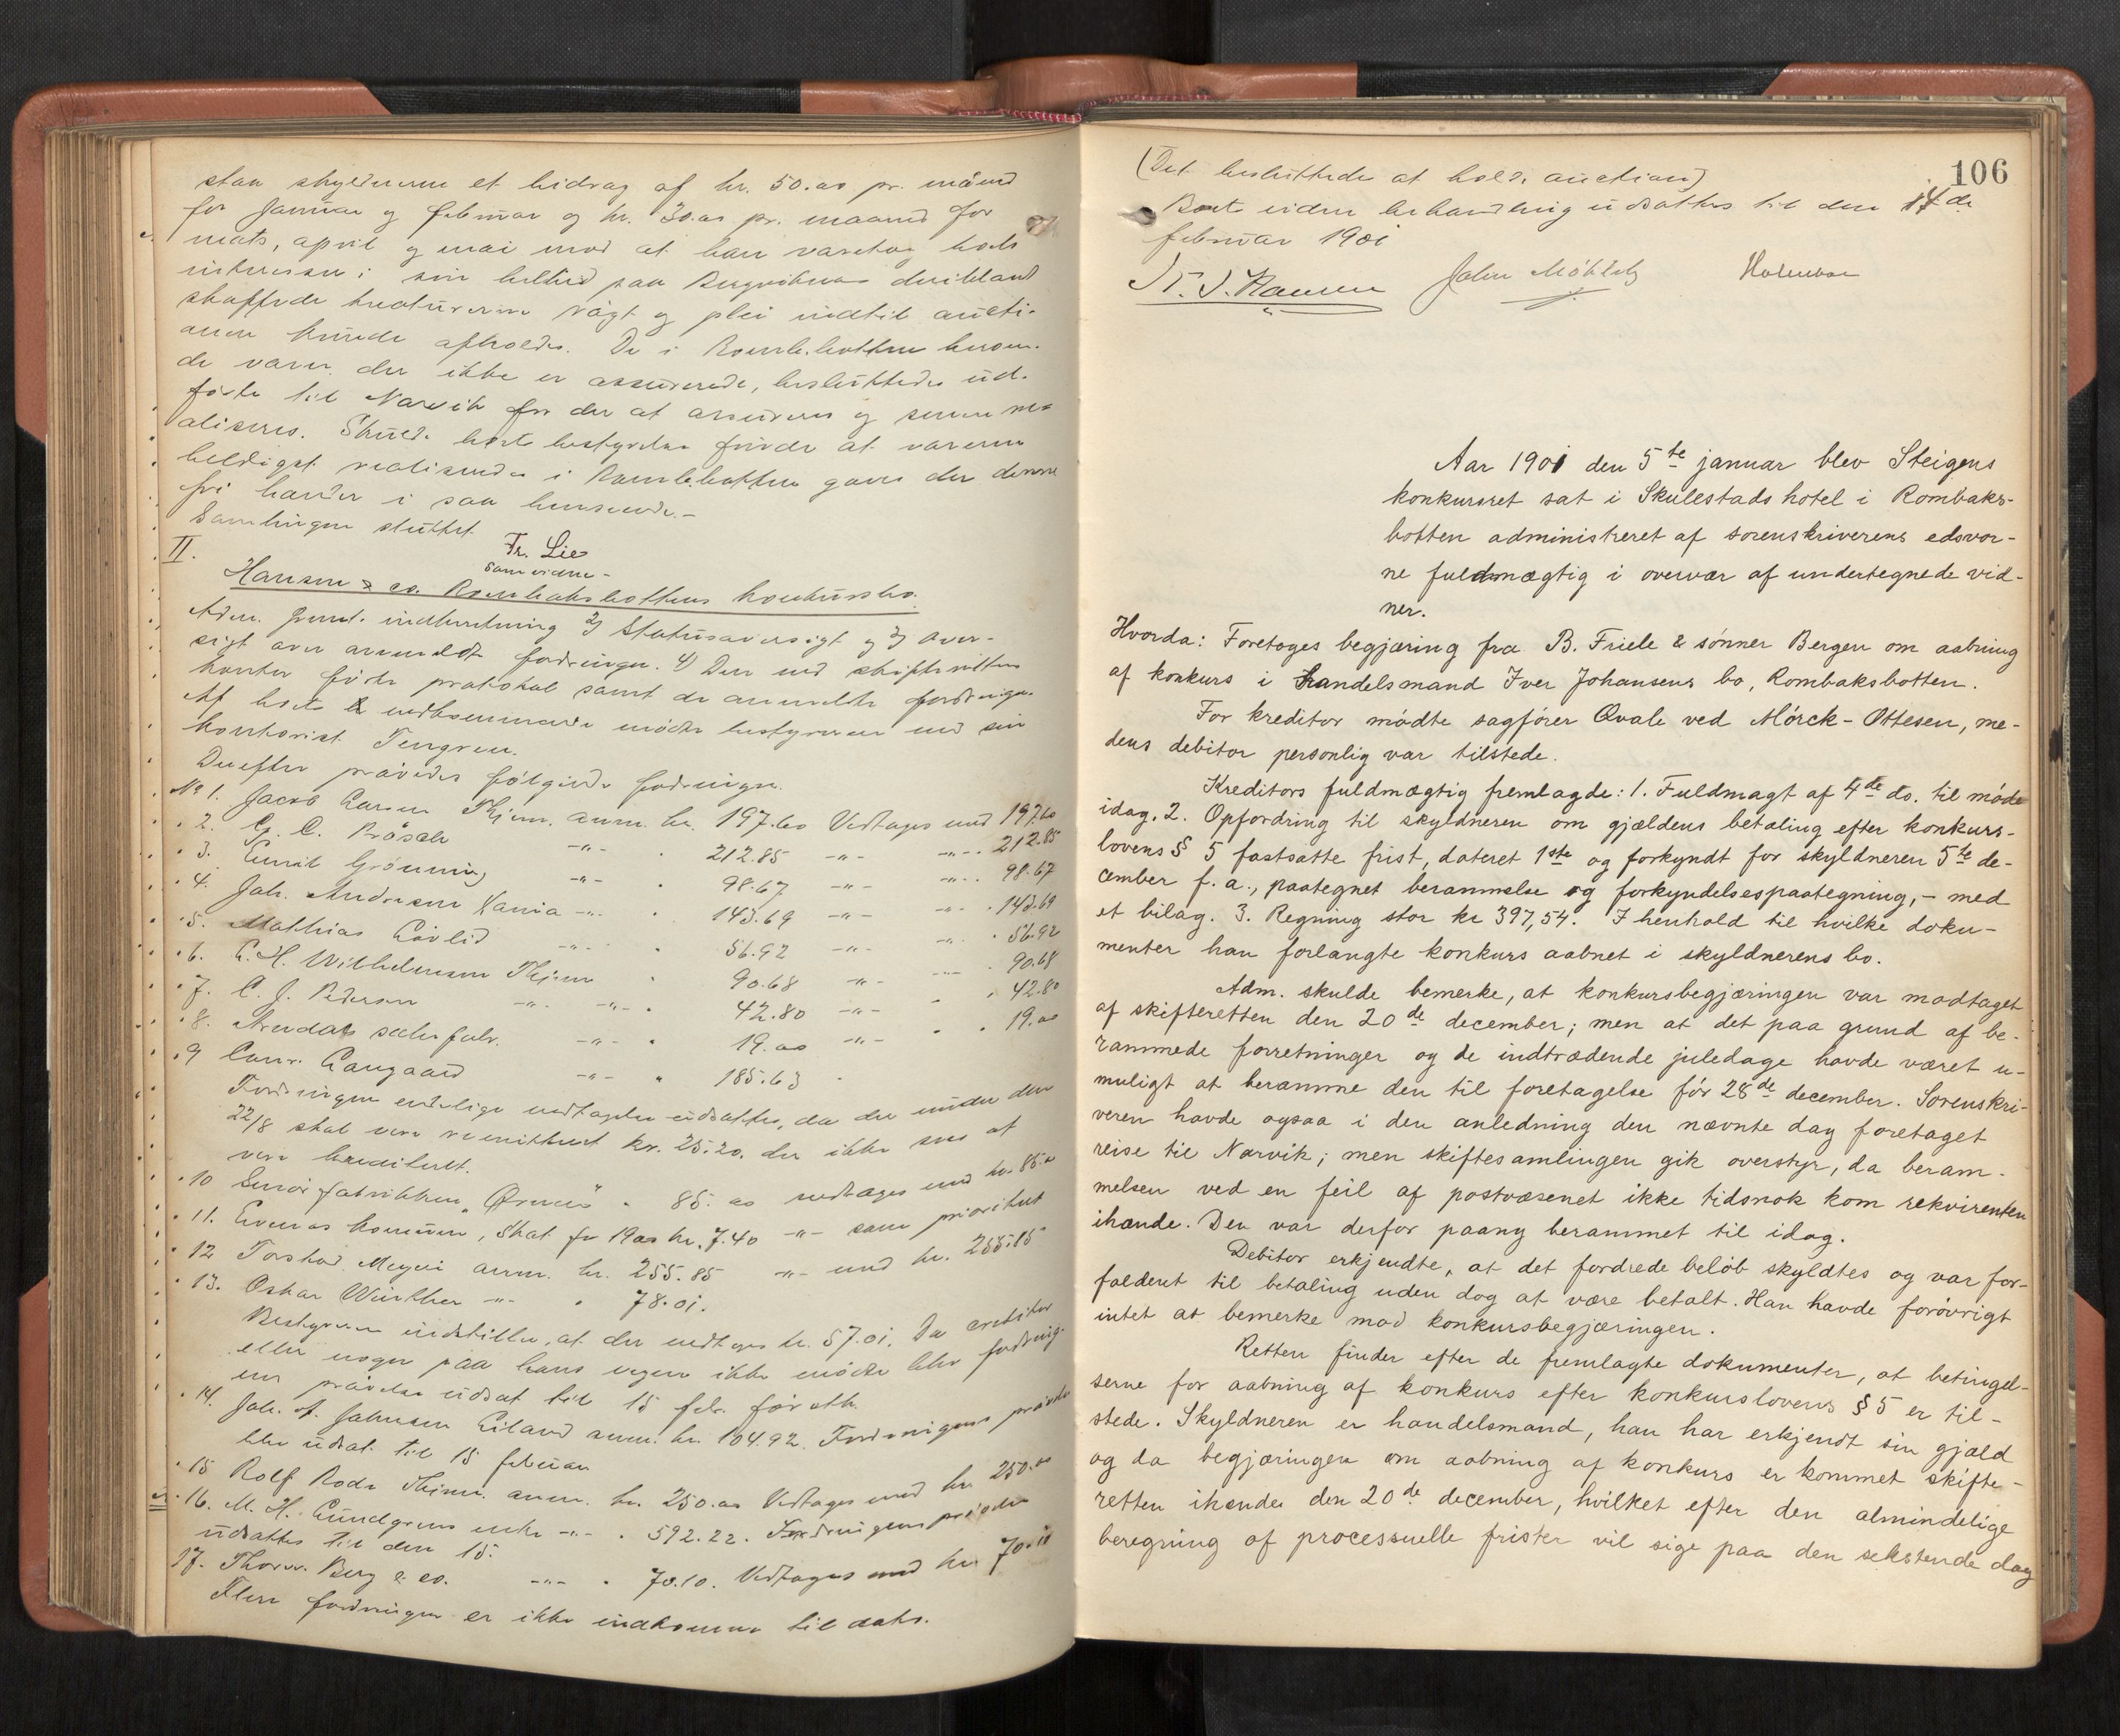 staa skyldnerne et bidrag af kr. 50.00 pr. måned
for Januar og februar og kr. 30.00 pr. maaned for
mats, april og mai mod at han varetog boets
interesser i sin helhed paa
skaffede kreaturerne røgt og plei indtil aucti-
onen kunde afholdes. De i Romb.botten beroen-
de varer, der ikke er assurerede, besluttedes ud-
førte til Narvik for der at assureres og senere re-
aliseres. Skulde bostyrelsen finde at varerne
heldigst realiseredes i Romb.botten gaves der denne
fri hænder i saa henseende.-
Samlingen sluttet.
Fr. Lie
som vidne-
II.
Hansen & co. Rombaksbottens konkursbo.
Adm. freml. indberetning 2) Statusoversigt og 3) over-
sigt over anmeldte fordringer. 4) Den ved skifterettens
kontor førte protokol samt de anmeldte fordringer.
Af boets vedkommende mødte bestyreren ved sin
kontorist Tengren.
Derefter prøvedes følgende fordringer.
No 1. Jacob Larsen Thjem. anm. kr. 197.60 Vedtages med 197.60
" 2. G. C. Brøsch -"- " 212.85 -"- -"- 212.85
" 3. Emil Grønning -"- " 98.67 -"- -"- 98.67
" 4. Joh. Andresen Kania -"- " 143.69 -"- -"- 143.69
" 5. Mathias Løvlid -"- " 56.92 -"- -"- 56.92
" 6. C. H. Wilhelmsen Thjem " 90.68 -"- -"- 90.68
" 7. C. J. Pedersen -"- -"- " 42.80 -"- " " 42.80
" 8. Arendals fabr. -"- " 19.00 -"- " " 19.00
" 9 Conr. Langaard -"- " 185.63 "
Fordringens endelige vedtagelse udsattes, da der under den
22/8 skal være remitteret kr. 25.20, der ikke sees at
være krediteret.
" 10 Smørfabrikken "Ørnen" " 85.00 vedtages med kr. 85.00
" 11. Evenes kommune, Skat for 1900 kr. 7.40 -"- som prioritert
" 12 Torstad Meyer anm. kr. 255.85 -"- med kr. 255.85
" 13. Oskar Würther -"- " 78.01.
Bestyreren indstiller, at der vedtages kr. 57.01. Da creditor
eller nogen paa hans vegne ikke mødte blev fordring-
ens prøvelse udsat til 15 febr. førstk.
" 14. Joh. A. Johnsen Eiland anm. kr. 104.92. Fordringens prøvelse
blev udsat til 15 februar
" 15 Rolf Rode Thjem. anm. kr. 250.00 Vedtages med kr. 250.00
" 16. M. H. Lundgrens enke -"- " 592.22. Fordringens prøvelse
udsattes til den 15.
17. Thorv. Berg & co. -"- " 70.10. Vedtages med kr. 70.10
Flere fordringer er ikke indkomne til dato.
106
(Det besluttedes at holde auction)
Boets videre behandling udsattes til den 14de
februar 1901
N. J. Hansen John
Aar 1901 den 5te januar blev Steigens
konkursret sat i Skulestads hotel i Rombaks-
botten administreret af sorenskriverens edsvor-
ne fuldmægtig i overvær af undertegnede vid-
ner.
Hvorda: Foretoges begjæring fra B. Friele & sønner Bergen om aabning
af konkurs i handelsmand Iver Johansens bo, Rombaksbotten.
For kreditor mødte sagfører Qvale ved Mörck-Ottesen, me-
dens debitor personlig var tilstede.
Kreditors fuldmægtig fremlagde: 1. Fuldmagt af 4de ds. til møde
idag. 2. Opfordring til skyldneren om gjældens betaling efter konkurs-
lovens § 5 fastsatte frist, dateret 1ste og forkyndt for skyldneren 5te de-
cember f. a., paategnet berammelse og forkyndelsespaategning, - med
et bilag. 3. Regning stor kr 397,54. I henhold til hvilke doku-
menter han forlangte konkurs aabnet i skyldnerens bo.
Adm. skulde bemerke, at konkursbegjæringen var modtaget
af skifteretten den 20de december; men at det paa grund af be-
rammede forretninger og de indtrædende juledage havde været u-
muligt at beramme den til foretagelse før 28de december. Sorenskri-
veren havde ogsaa i den anledning den nævnte dag foretaget
reise til Narvik; men skiftesamlingen gik overstyr, da beram-
melsen ved en feil af postvæsenet ikke tidsnok kom rekvirenten
ihænde. Den var derfor paany berammet til idag.
Debitor erkjendte, at det fordrede beløb skyldtes og var for-
faldent til betaling uden dog at være betalt. Han havde forøvrigt
intet at bemerke mod konkursbegjæringen.
Retten finder efter de fremlagte dokumenter, at betingel-
serne for aabning af konkurs efter konkurslovens § 5 er til-
stede. Skyldneren er handelsmand, han har erkjendt sin gjæld
og da begjæringen om aabning af konkurs er kommet skifte-
retten ihænde den 20de december, hvilket efter den almindelige
beregning af processuelle frister vil sige paa den sekstende dag